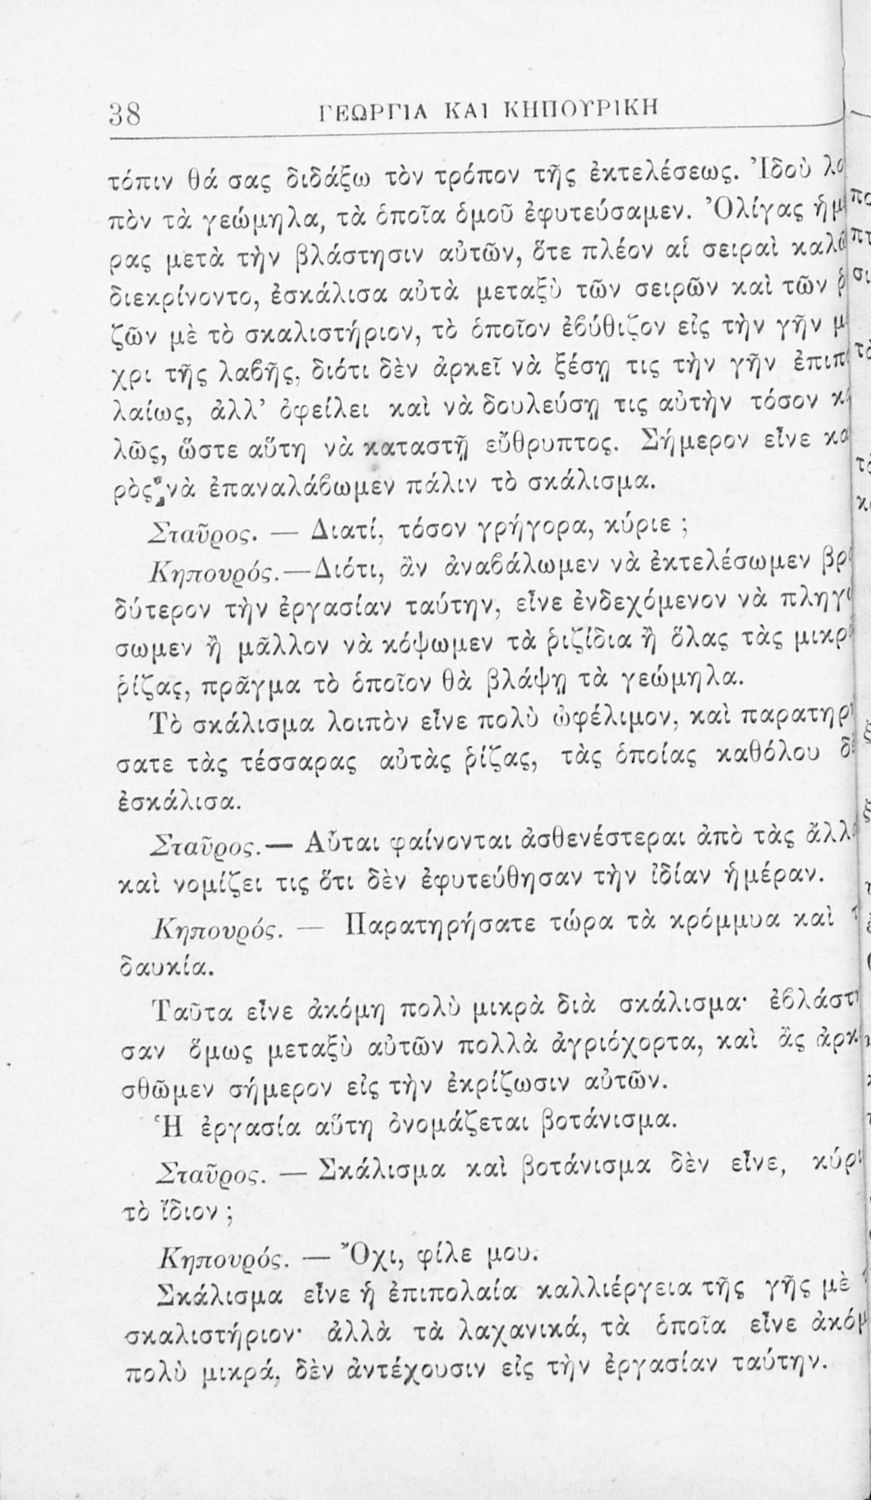 38 ΓΕΩΡΓΙΑ ΚΑΙ ΚΗΠΟΥΡΙΚΗ
τόπιν θά σας διδάξω τὸν τρόπον τῆς ἐκτελέσεως. Ἰδοὺ
πὸν τὰ γεώμηλα, τὰ ὁποῖα ὁμοῦ ἐφυτεύσαμεν. Ὀλίγας
ρας μετὰ τὴν βλάστησιν αὐτῶν, ὅτε πλέον αἱ σειραὶ
διεκρίνοντο, ἐσκάλισα αὐτὰ μεταξὺ τῶν σειρῶν καὶ τῶν
ζῶν μὲ τὸ σκαλιστήριον, τὸ ὁποῖον ἐβύθιζον εἰς τὴν γῆν
χρι τῆς λαβῆς, διότι δὲν ἀρκεῖ νὰ ξέσῃ τις τὴν γῆν
λαίως, ἀλλ' ὀφείλει καὶ νὰ δουλεύσῃ τις αὐτὴν τόσον
λῶς, ὥστε αὕτη νὰ καταστῇ εὔθρυπτος. Σήμερον εἶνε
ρὸς νὰ ἐπαναλάβωμεν πάλιν τὸ σκάλισμα.
Σταῦρος. — Διατί, τόσον γρήγορα, κύριε ;
Κηπουρός.—Διότι, ἂν ἀναβάλωμεν νὰ ἐκτελέσωμεν
δύτερον τὴν ἐργασίαν ταύτην, εἶνε ἐνδεχόμενον νὰ
σωμεν ἢ μᾶλλον νὰ κόψωμεν τὰ ῥιζίδια ἢ ὅλας τὰς
ῥίζας, πρᾶγμα τὸ ὁποῖον θὰ βλάψῃ τὰ γεώμηλα.
Τὸ σκάλισμα λοιπὸν εἶνε πολὺ ὠφέλιμον, καὶ
σατε τὰς τέσσαρας αὐτὰς ῥίζας, τὰς ὁποίας καθόλου
ἐσκάλισα.
Σταῦρος.— Αὗται φαίνονται ἀσθενέστεραι ἀπὸ τὰς
καὶ νομίζει τις ὅτι δὲν ἐφυτεύθησαν τὴν ἰδίαν ἡμέραν.
Κηπουρός. — Παρατηρήσατε τώρα τὰ κρόμμυα καὶ
δαυκία.
Ταῦτα εἶνε ἀκόμη πολὺ μικρὰ διὰ σκάλισμα·
σαν ὅμως μεταξὺ αὐτῶν πολλὰ ἀγριόχορτα, καὶ ἂς
σθῶμεν σήμερον εἰς τὴν ἐκρίζωσιν αὐτῶν.
Ἡ ἐργασία αὕτη ὀνομάζεται βοτάνισμα.
Σταῦρος. — Σκάλισμα καὶ βοτάνισμα δὲν εἶνε,
τὸ ἴδιον ;
Κηπουρός. — Ὄχι, φίλε μου.
Σκάλισμα εἶνε ἡ ἐπιπολαία καλλιέργεια τῆς γῆς μὲ
σκαλιστήριον· ἀλλὰ τὰ λαχανικά, τὰ ὁποῖα εἶνε
πολὺ μικρά, δὲν ἀντέχουσιν εἰς τὴν ἐργασίαν ταύτην.